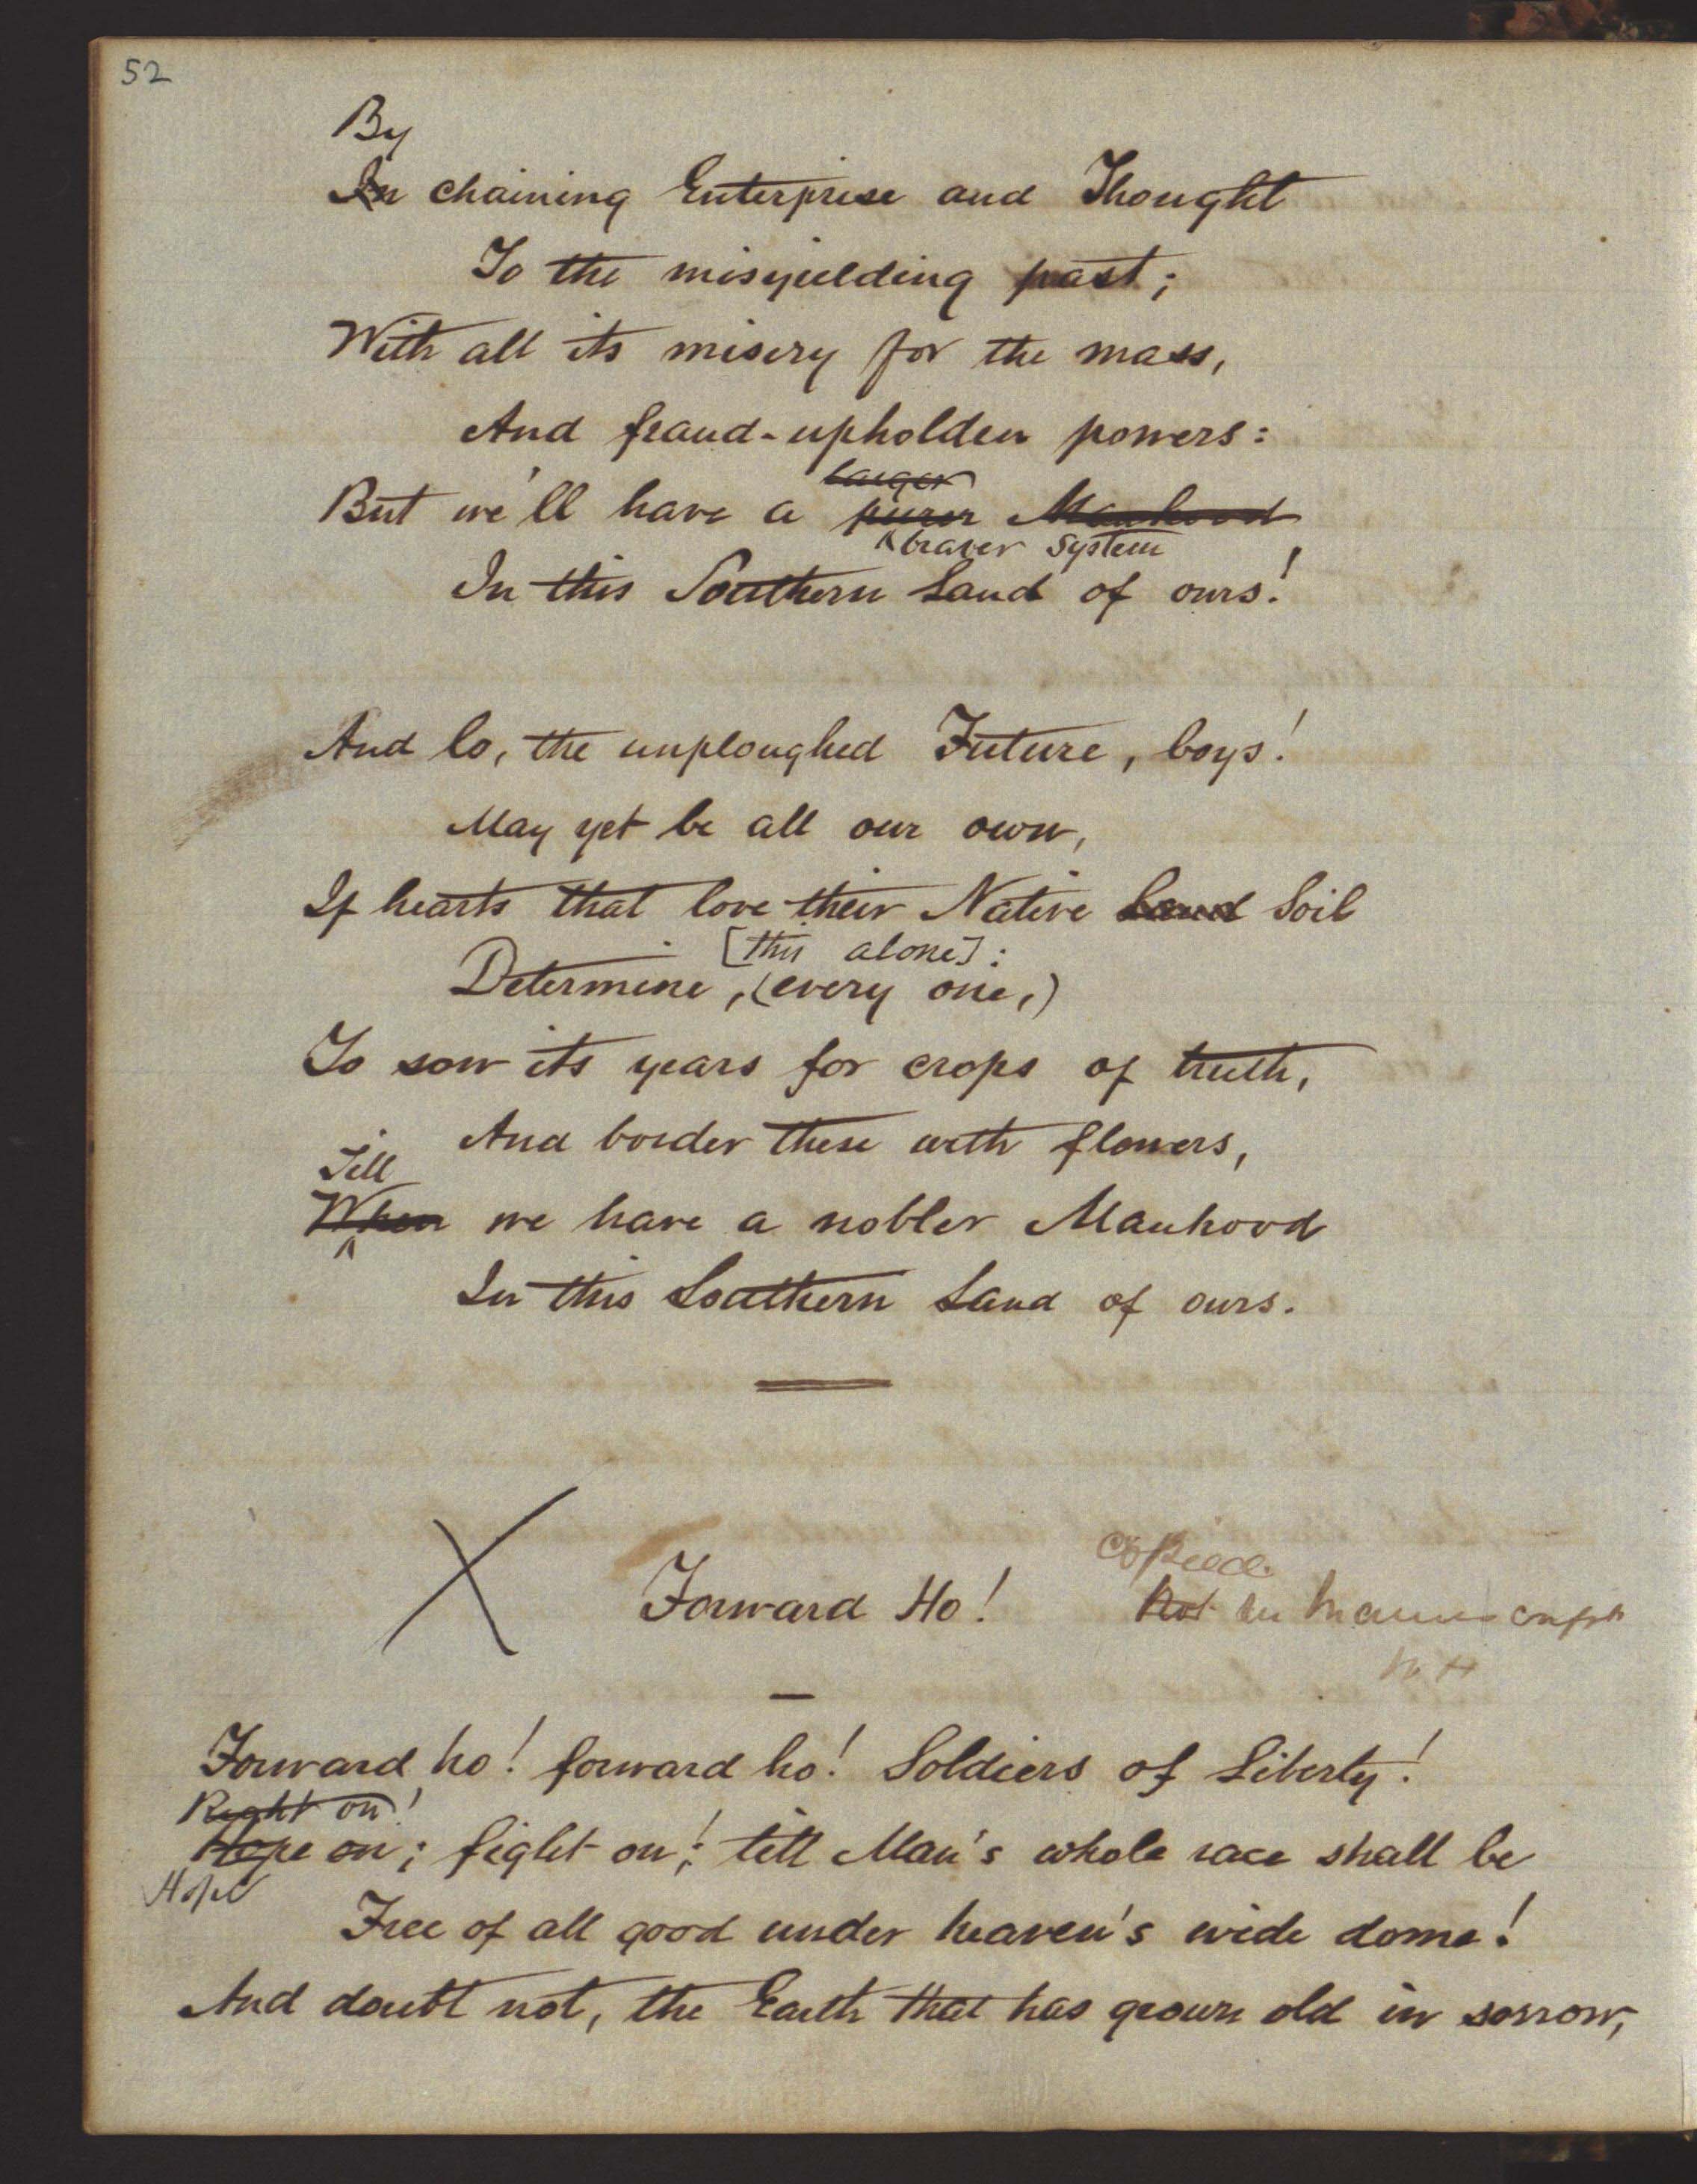 52
By
In chaining Enterprise and Thought
To the misyielding past;
With all its misery for the mass,
And fraud-upholden powers:
larger
But we'll have a purer Manhood
braver system
In this Southern Land of ours!
And lo, the unploughed Future, boys!
May yet be all our own,
If hearts that love their Native Land Soil
[this alone]:
Determine, (every one,)
To sow its years for crops of truth,
And border these with flowers,
Till
When we have a nobler Manhood
In this Southern Land of ours.
copied
Forward Ho! Not in Manuscript
Forward ho! forward ho! Soldiers of Liberty!
Right on!
Hope on; fight on!; till Man's whole race shall be
Hope
Free of all good under heaven's wide dome!
And doubt not, the Earth that has grown old in sorrow,